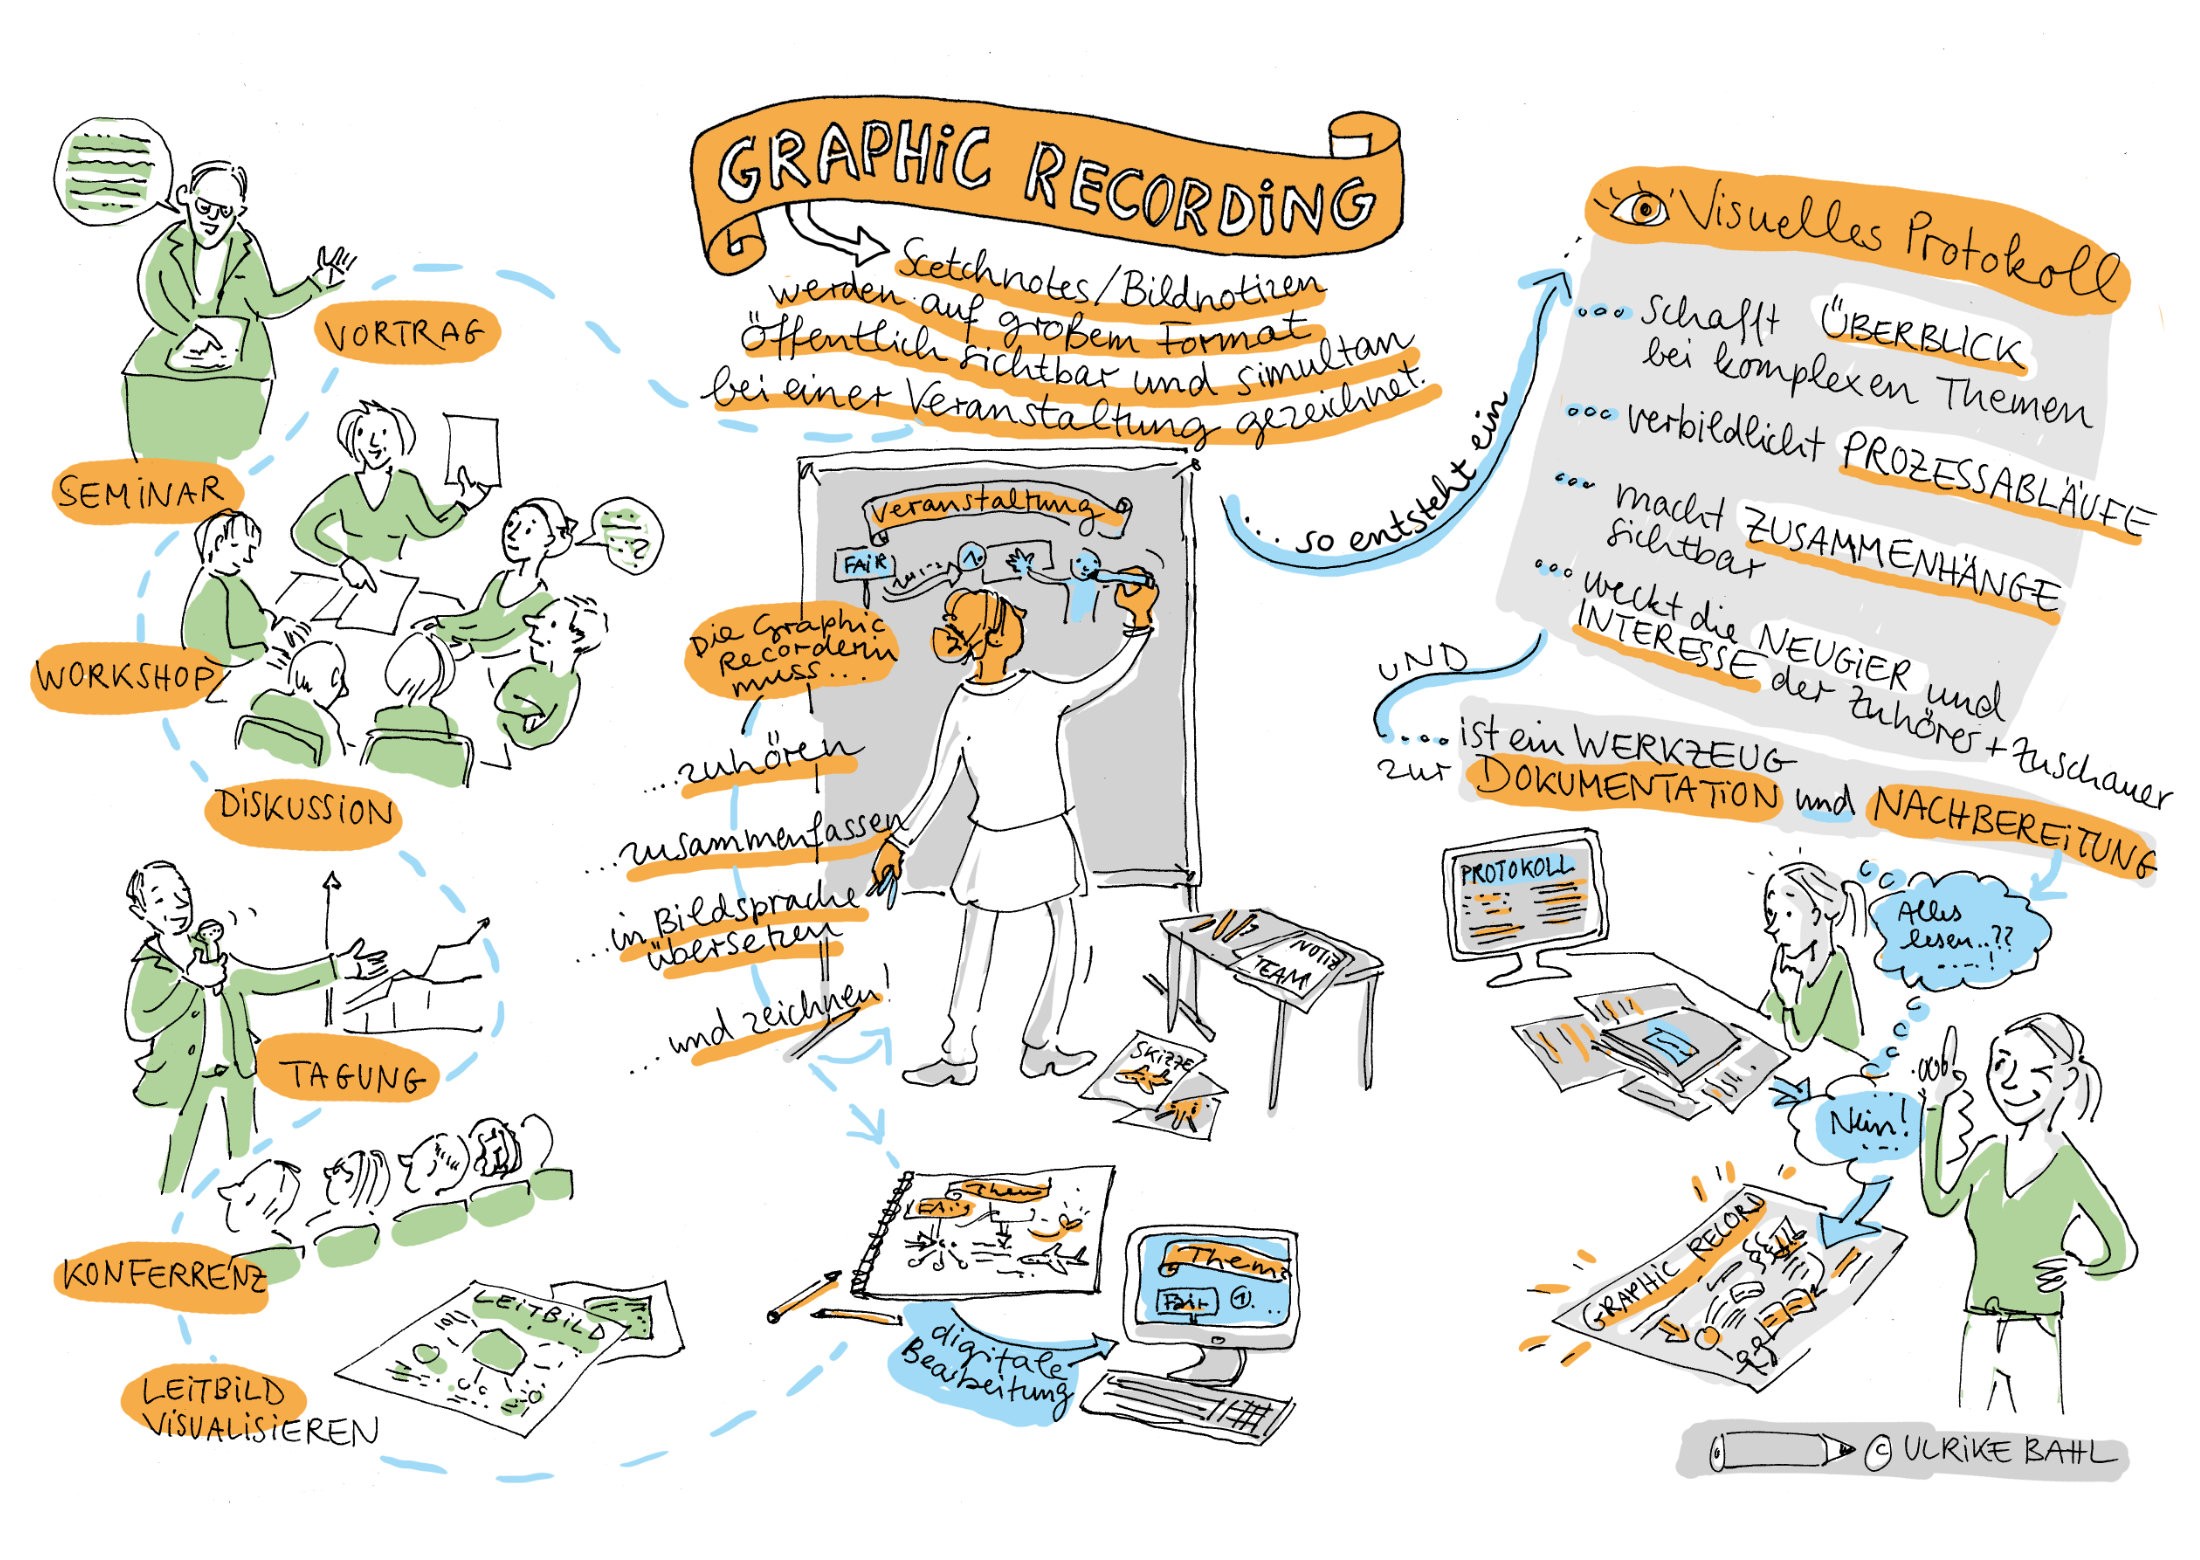 GRAPHIC RECORDING
Scetchnotes/Bildnotizen
werden auf großem Format
öffentlich sichtbar und simultan
bei einer Veranstaltung gezeichnet.
VORTRAG
SEMINAR
WORKSHOP
DISKUSSION
TAGUNG
KONFERRENZ
LEITBILD
VISUALISIEREN
LEITBILD
Veranstaltung
FAIR
1.
Die Graphic
Recorderin
muss...
...zuhören
...zusammenfassen
...in Bildsprache
übersetzen
...und zeichnen!
NOTIZ
TEAM
SKIZZE
Them
FAIR
digitale
Bearbeitung
Thema
Fair 1. ..
... so entsteht ein
Visuelles Protokoll
... schafft ÜBERBLICK
bei komplexen Themen
... verbildlicht PROZESSABLÄUFE
... macht ZUSAMMENHÄNGE
sichtbar
... weckt die NEUGIER und
INTERESSE der Zuhörer + Zuschauer
UND
.... ist ein WERKZEUG
zur DOKUMENTATION und NACHBEREITUNG
PROTOKOLL
Alles
lesen..??
....!
Nein!
GRAPHIC RECORD
© ULRIKE BAHL